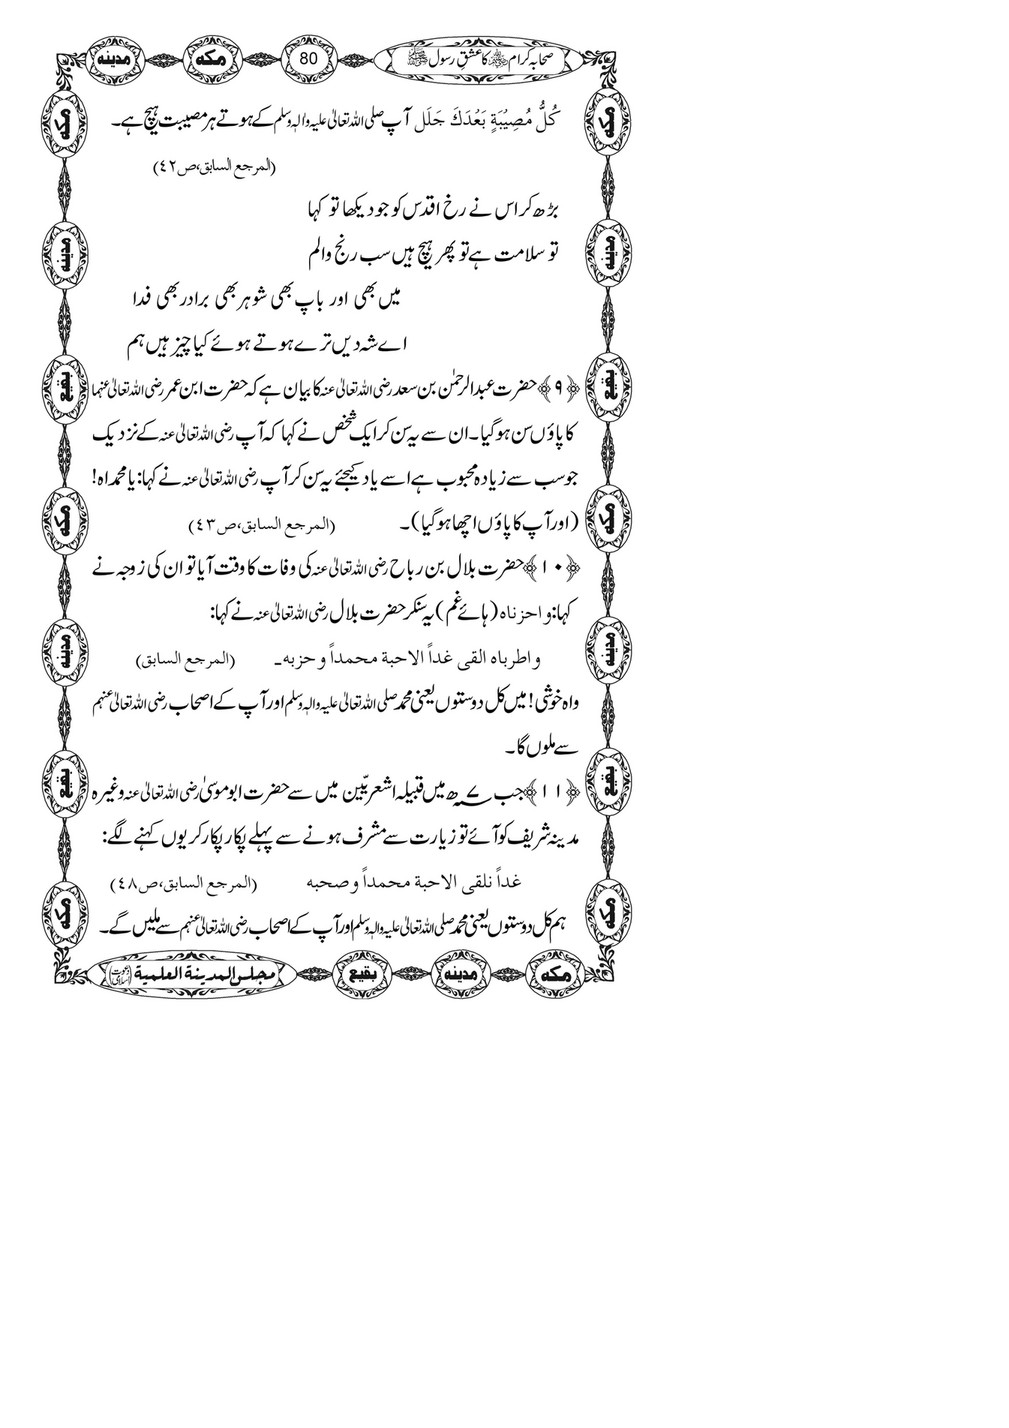 صحابہ کرام ﷡ کا عشق رسول ﷺ 80 مكه مدينه
كُلُّ مُصِيْبَةٍ بَعْدَكَ جَلَل آپ صلی اللہ تعالیٰ علیہ والہٖ وسلم کے ہوتے ہر مصیبت ہیچ ہے۔
(المرجع السابق،ص٤٢)
بڑھ کر اس نے رخ اقدس کو جو دیکھا تو کہا
تو سلامت ہے تو پھر ہیچ ہیں سب رنج والم
میں بھی اور باپ بھی شوہر بھی برادر بھی فدا
اے شہ دیں ترے ہوتے ہوئے کیا چیز ہیں ہم
﴿۹﴾ حضرت عبدالرحمٰن بن سعد رضی اللہ تعالیٰ عنہ کا بیان ہے کہ حضرت ابن عمر رضی اللہ تعالیٰ عنہما
کا پاؤں سن ہوگیا۔ ان سے یہ سن کر ایک شخص نے کہا کہ آپ رضی اللہ تعالیٰ عنہ کے نزدیک
جو سب سے زیادہ محبوب ہے اسے یاد کیجئے یہ سن کر آپ رضی اللہ تعالیٰ عنہ نے کہا: یا محمداہ!
(اور آپ کا پاؤں اچھا ہوگیا)۔ (المرجع السابق،ص٤٣)
﴿۱۰﴾ حضرت بلال بن رباح رضی اللہ تعالیٰ عنہ کی وفات کا وقت آیا تو ان کی زوجہ نے
کہا: واحزناہ (ہائے غم) یہ سنکر حضرت بلال رضی اللہ تعالیٰ عنہ نے کہا:
واطرباه القى غداً الاحبة محمداً وحزبه۔ (المرجع السابق)
واہ خوشی! میں کل دوستوں یعنی محمد صلی اللہ تعالیٰ علیہ والہٖ وسلم اور آپ کے اصحاب رضی اللہ تعالیٰ عنہم
سے ملوں گا۔
﴿۱۱﴾ جب ۷ھ میں قبیلہ اشعریّین میں سے حضرت ابوموسیٰ رضی اللہ تعالیٰ عنہ وغیرہ
مدینہ شریف کو آئے تو زیارت سے مشرف ہونے سے پہلے پکار پکار کر یوں کہنے لگے:
غداً نلقى الاحبة محمداً وصحبه (المرجع السابق،ص٤٨)
ہم کل دوستوں یعنی محمد صلی اللہ تعالیٰ علیہ والہٖ وسلم اور آپ کے اصحاب رضی اللہ تعالیٰ عنہم سے ملیں گے۔
مكه مدينه بقيع مجلس المدينة العلمية (دعوت اسلامی)
مكه
مدينه
بقيع
مكه
مدينه
بقيع
مكه
مكه
مدينه
بقيع
مكه
مدينه
بقيع
مكه